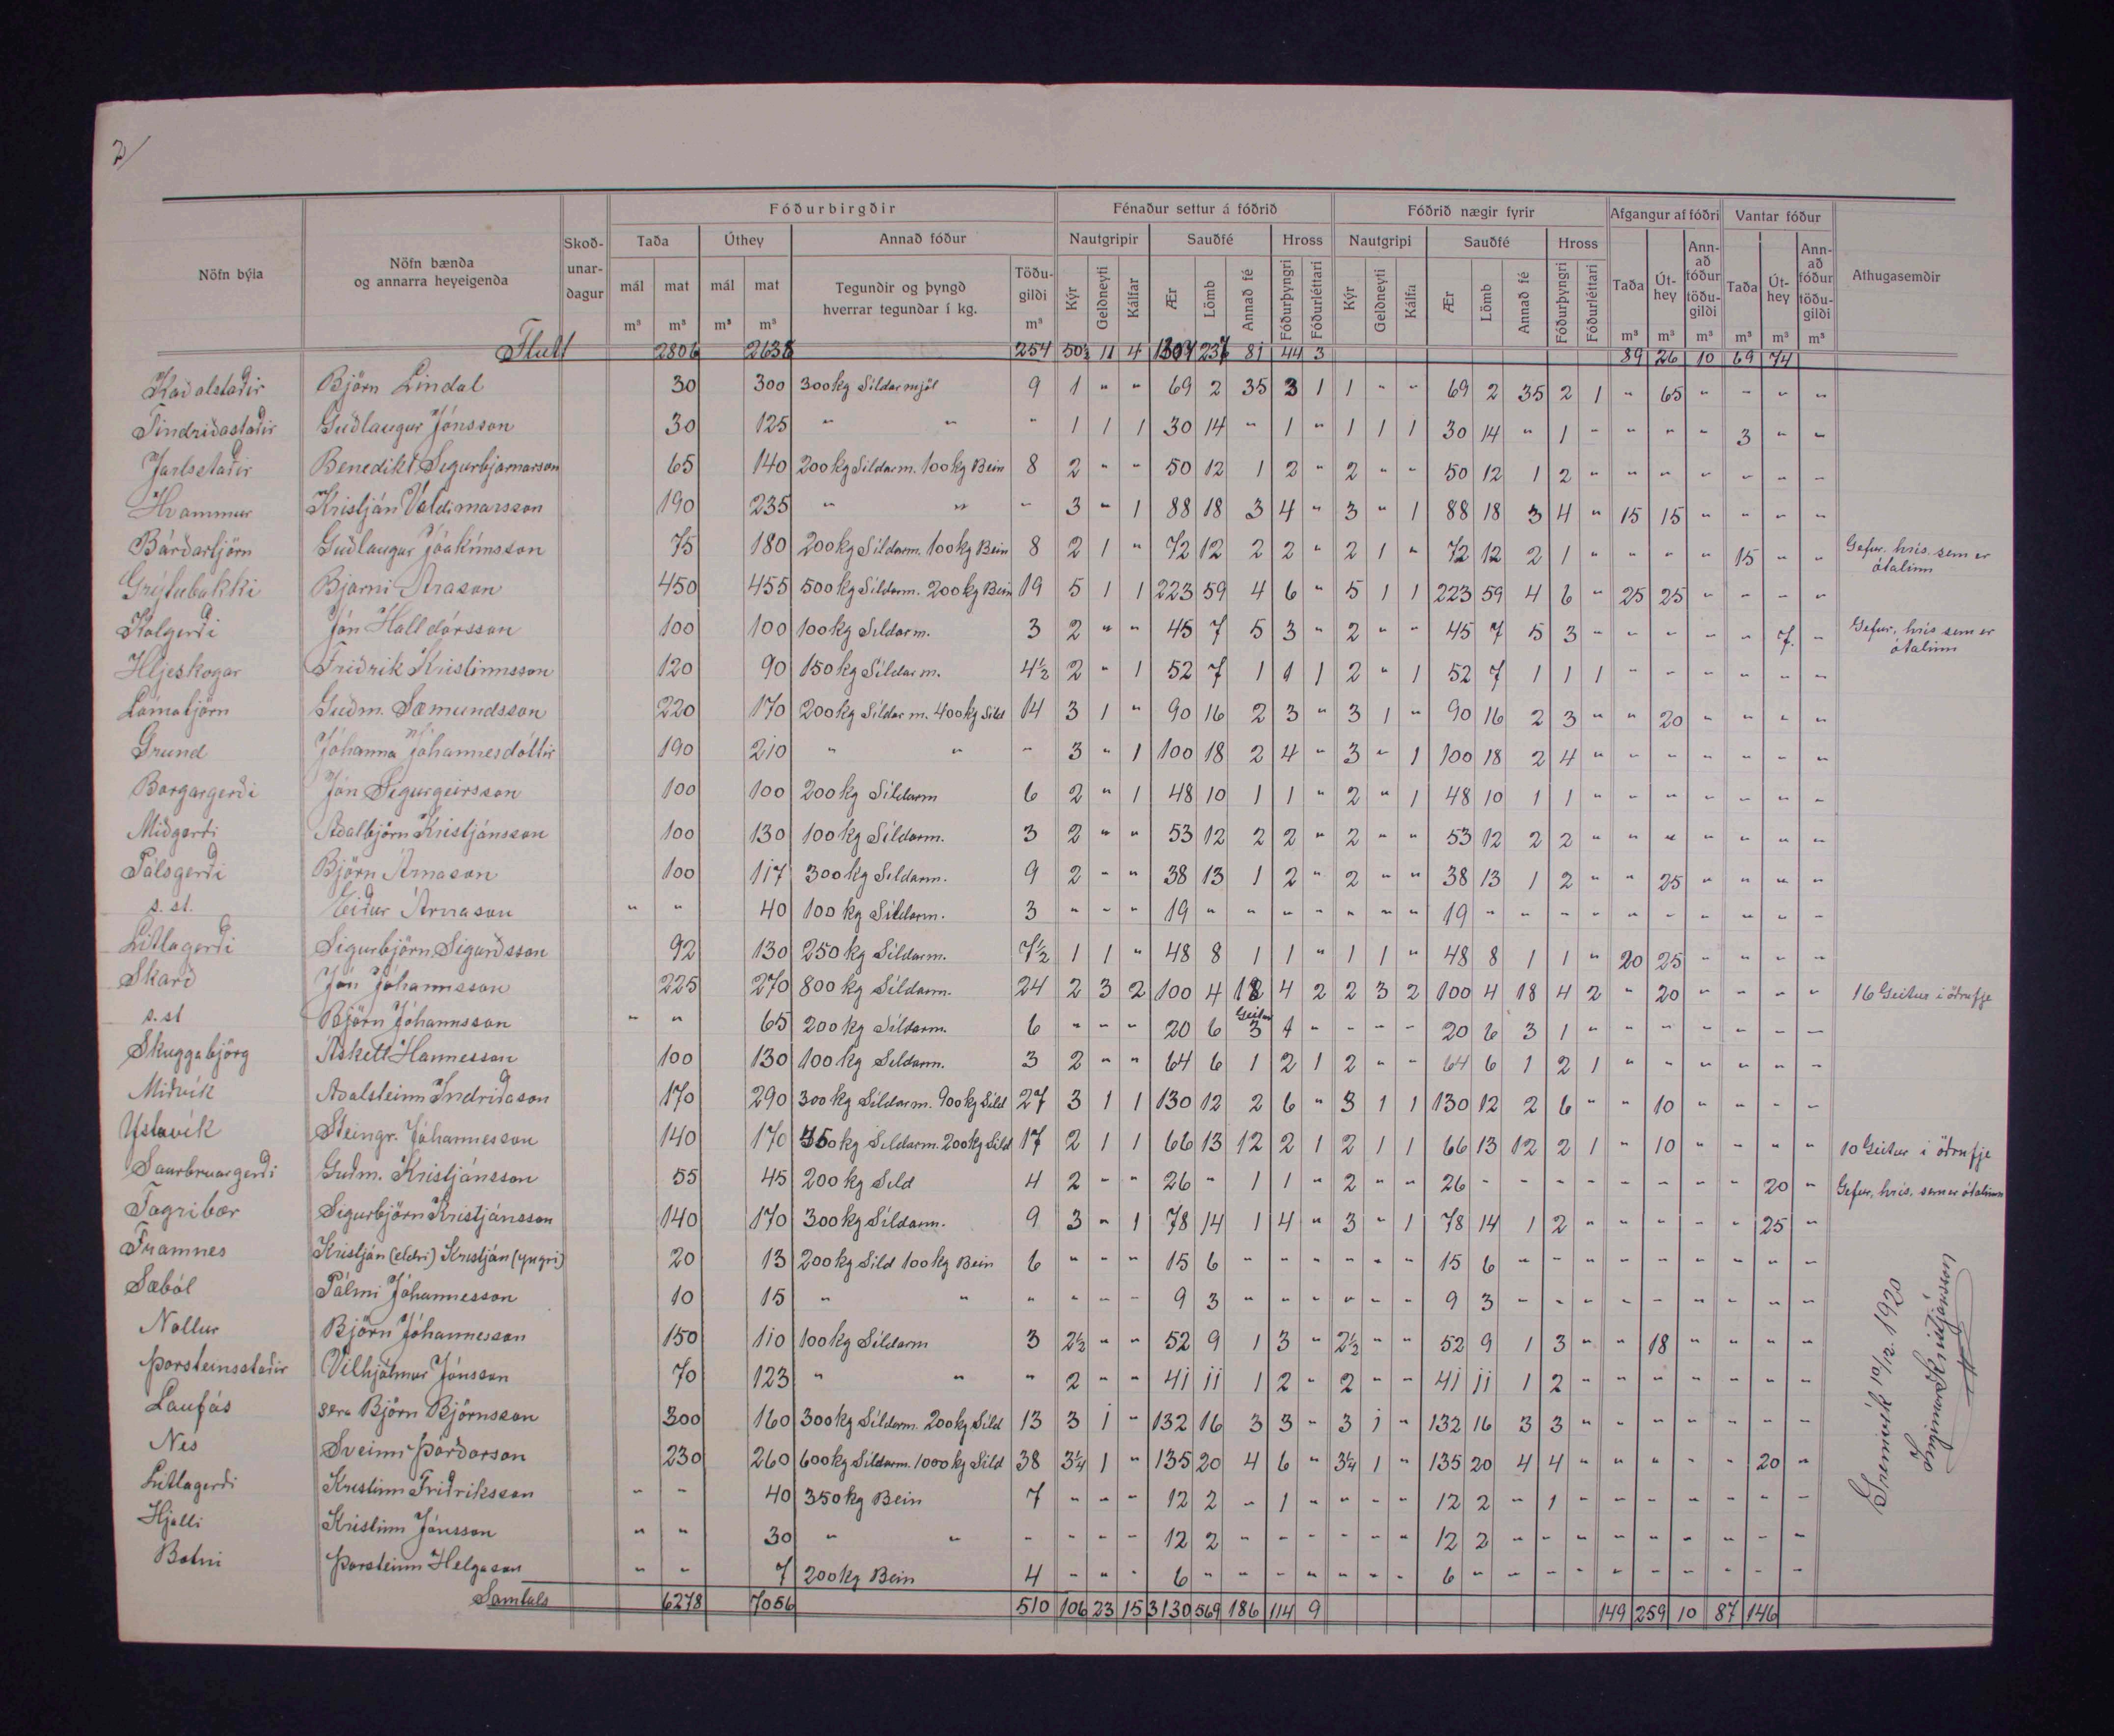 2/
Fóðurbirgðir Fénaður settur á fóðrið Fóðrið nægir fyrir Afgangur af fóðri Vantar fóður
Nöfn býla Nöfn bænda og annarra heyeigenda Skoð-unar-dagur Taða Úthey Annað fóður Nautgripir Sauðfé Hross Nautgripi Sauðfé Hross Taða Út-hey Ann-að fóður töðu-gildi Taða Út-hey Ann-að fóður töðu-gildi Athugasemdir
mál m³ mat m³ mál m³ mat m³ Tegundir og þyngd hverrar tegundar í kg. Töðu-gildi m³ Kýr Geldneyti Kálfar Ær Lömb Annað fé Fóðurþyngri Fóðurléttari Kýr Geldneyti Kálfa Ær Lömb Annað fé Fóðurþyngri Fóðurléttari m³ m³ m³ m³ m³ m³
Flutt 2806 2638 254 50½ 11 4 1307 237 81 44 3 89 26 10 69 74
Kaðalstaðir Björn Lindal 30 300 300 kg Síldarmjöl 9 1 " " 69 2 35 3 1 1 " " 69 2 35 2 1 " 65 " " " "
Tindriðastaðir Guðlaugur Jónsson 30 125 " " " 1 1 1 30 14 " 1 " 1 1 1 30 14 " 1 " " " " 3 " "
Jarlsstaðir Benedikt Sigurbjarnarson 65 140 200 kg Síldarm. 100 kg Bein 8 2 " " 50 12 1 2 " 2 " " 50 12 1 2 " " " " " " "
Hvammur Kristján Valdimarsson 190 235 " " " 3 " 1 88 18 3 4 " 3 " 1 88 18 3 4 " 15 15 " " " "
Bárðartjörn Guðlaugur Jóakimsson 75 180 200 kg Síldarm. 100 kg Bein 8 2 1 " 72 12 2 2 " 2 1 " 72 12 2 1 " " " " 15 " " Gefur hris. sem er ótalinn
Grýtubakki Bjarni Arason 450 455 500 kg Síldarm. 200 kg Bein 19 5 1 1 223 59 4 6 " 5 1 1 223 59 4 6 " 25 25 " " " "
Kolgerði Jón Halldórsson 100 100 100 kg Síldarm. 3 2 " " 45 7 5 3 " 2 " " 45 7 5 3 " " " " " 7. " Gefur, hris sem er ótalinn
Hljeskogar Friðrik Kristinnsson 120 90 150 kg Síldarm. 4½ 2 " 1 52 7 1 1 1 2 " 1 52 7 1 1 1 " " " " " "
Lómatjörn Guðm. Sæmundsson 220 170 200 kg Síldarm. 400 kg Síld 14 3 1 " 90 16 2 3 " 3 1 " 90 16 2 3 " " 20 " " " "
Grund Jóhanna Jóhannesdóttir 190 210 " " " 3 " 1 100 18 2 4 " 3 " 1 100 18 2 4 " " " " " " "
Borgargerði Jón Sigurgeirsson 100 100 200 kg Síldarm 6 2 " 1 48 10 1 1 " 2 " 1 48 10 1 1 " " " " " " "
Miðgerði Aðalbjörn Kristjánsson 100 130 100 kg Síldarm. 3 2 " " 53 12 2 2 " 2 " " 53 12 2 2 " " " " " " "
Pálsgerði Björn Árnason 100 117 300 kg Síldarm. 9 2 " " 38 13 1 2 " 2 " " 38 13 1 2 " " 25 " " " "
s. st. Eiður Árnason " " 40 100 kg Síldarm. 3 " " " 19 " " " " " " " 19 " " " " " " " " " "
Litlagerði Sigurbjörn Sigurðsson 92 130 250 kg Síldarm. 7½ 1 1 " 48 8 1 1 " 1 1 " 48 8 1 1 " 20 25 " " " "
Skarð Jón Jóhannsson 225 270 800 kg Síldarm. 24 2 3 2 100 4 18 4 2 2 3 2 100 4 18 4 2 " 20 " " " " 16 Geitur i öðrufje
s. st Björn Jóhannsson " " 65 200 kg Síldarm. 6 " " " 20 6 Geitur 3 1 " " " " 20 6 3 1 " " " " " " "
Skuggabjörg Áskell Hannesson 100 130 100 kg Síldarm. 3 2 " " 64 6 1 2 1 2 " " 64 6 1 2 1 " " " " " "
Miðvík Aðalsteinn Indriðason 170 290 300 kg Síldarm. 900 kg Síld 27 3 1 1 130 12 2 6 " 3 1 1 130 12 2 6 " " 10 " " " "
Ystavík Steingr. Jóhannesson 140 170 350 kg Síldarm. 200 kg Síld 17 2 1 1 66 13 12 2 1 2 1 1 66 13 12 2 1 " 10 " " " " 10 Geitur i öðrufje
Saurbruargerði Guðm. Kristjánsson 55 45 200 kg Síld 4 2 " " 26 " 1 1 " 2 " " 26 " " " " " " " " 20 " Gefur, hris. sem er ótalinn
Fagribær Sigurbjörn Kristjánsson 140 170 300 kg Síldarm. 9 3 " 1 78 14 1 4 " 3 " 1 78 14 1 2 " " " " " 25 "
Framnes Kristján (eldri) Kristján (yngri) 20 13 200 kg Síld 100 kg Bein 6 " " " 15 6 " " " " " " 15 6 " " " " " " " " "
Sæból Pálmi Jóhannesson 10 15 " " " " " " 9 3 " " " " " " 9 3 " " " " " " " " "
Nollur Björn Jóhannesson 150 110 100 kg Síldarm 3 2½ " " 52 9 1 3 " 2½ " " 52 9 1 3 " " 18 " " " "
Þorsteinsstaðir Vilhjálmur Jónsson 70 123 " " " 2 " " 41 11 1 2 " 2 " " 41 11 1 2 " " " " " " "
Laufás séra Björn Björnsson 300 160 300 kg Síldarm. 200 kg Síld 13 3 1 " 132 16 3 3 " 3 1 " 132 16 3 3 " " " " " " "
Nes Sveinn Þórðarson 230 260 600 kg Síldarm. 1000 kg Síld 38 3¼ 1 " 135 20 4 6 " 3¼ 1 " 135 20 4 4 " " " " " 20 "
Litlagerði Kristinn Friðriksson " " 40 350 kg Bein 7 " " " 12 2 " 1 " " " " 12 2 " 1 " " " " " " "
Hjalli Kristinn Jónsson " " 30 " " " " " " 12 2 " " " " " " 12 2 " " " " " " " " "
Botni Þorsteinn Helgason " " 7 200 kg Bein 4 " " " 6 " " " " " " " 6 " " " " " " " " " "
Samtals 6278 7056 510 106 23 15 3130 569 186 114 9 149 259 10 87 146
Grenivík 10/12. 1920
Ingimar Kristjánsson